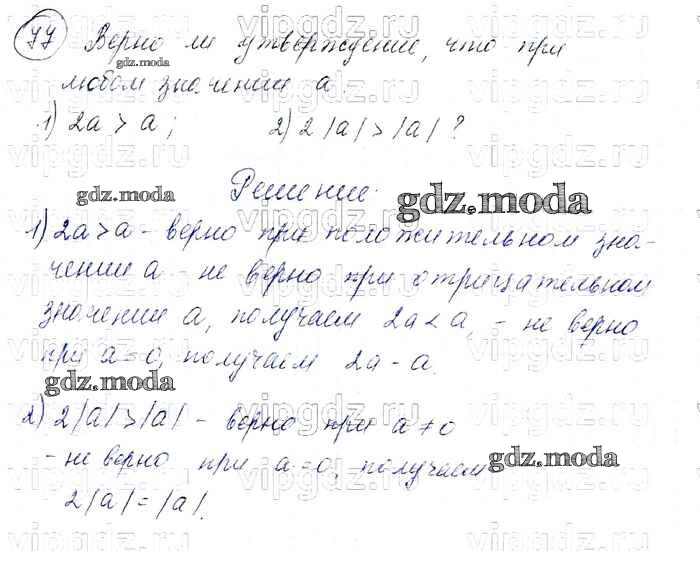 77 Верно ли утверждение, что при
любом значении a.
1) 2a > a; 2) 2|a| > |a| ?
Решение.
1) 2a > a - верно при положительном зна-
чении a - не верно при отрицательном
значении a, получаем 2a < a, - не верно
при a = 0, получаем 2a - a.
2) 2|a| > |a| - верно при a ≠ 0
- не верно при a = 0, получаем
2|a| = |a|.
gdz.moda
gdz.moda
gdz.moda
gdz.moda
gdz.moda
vipgdz.ru